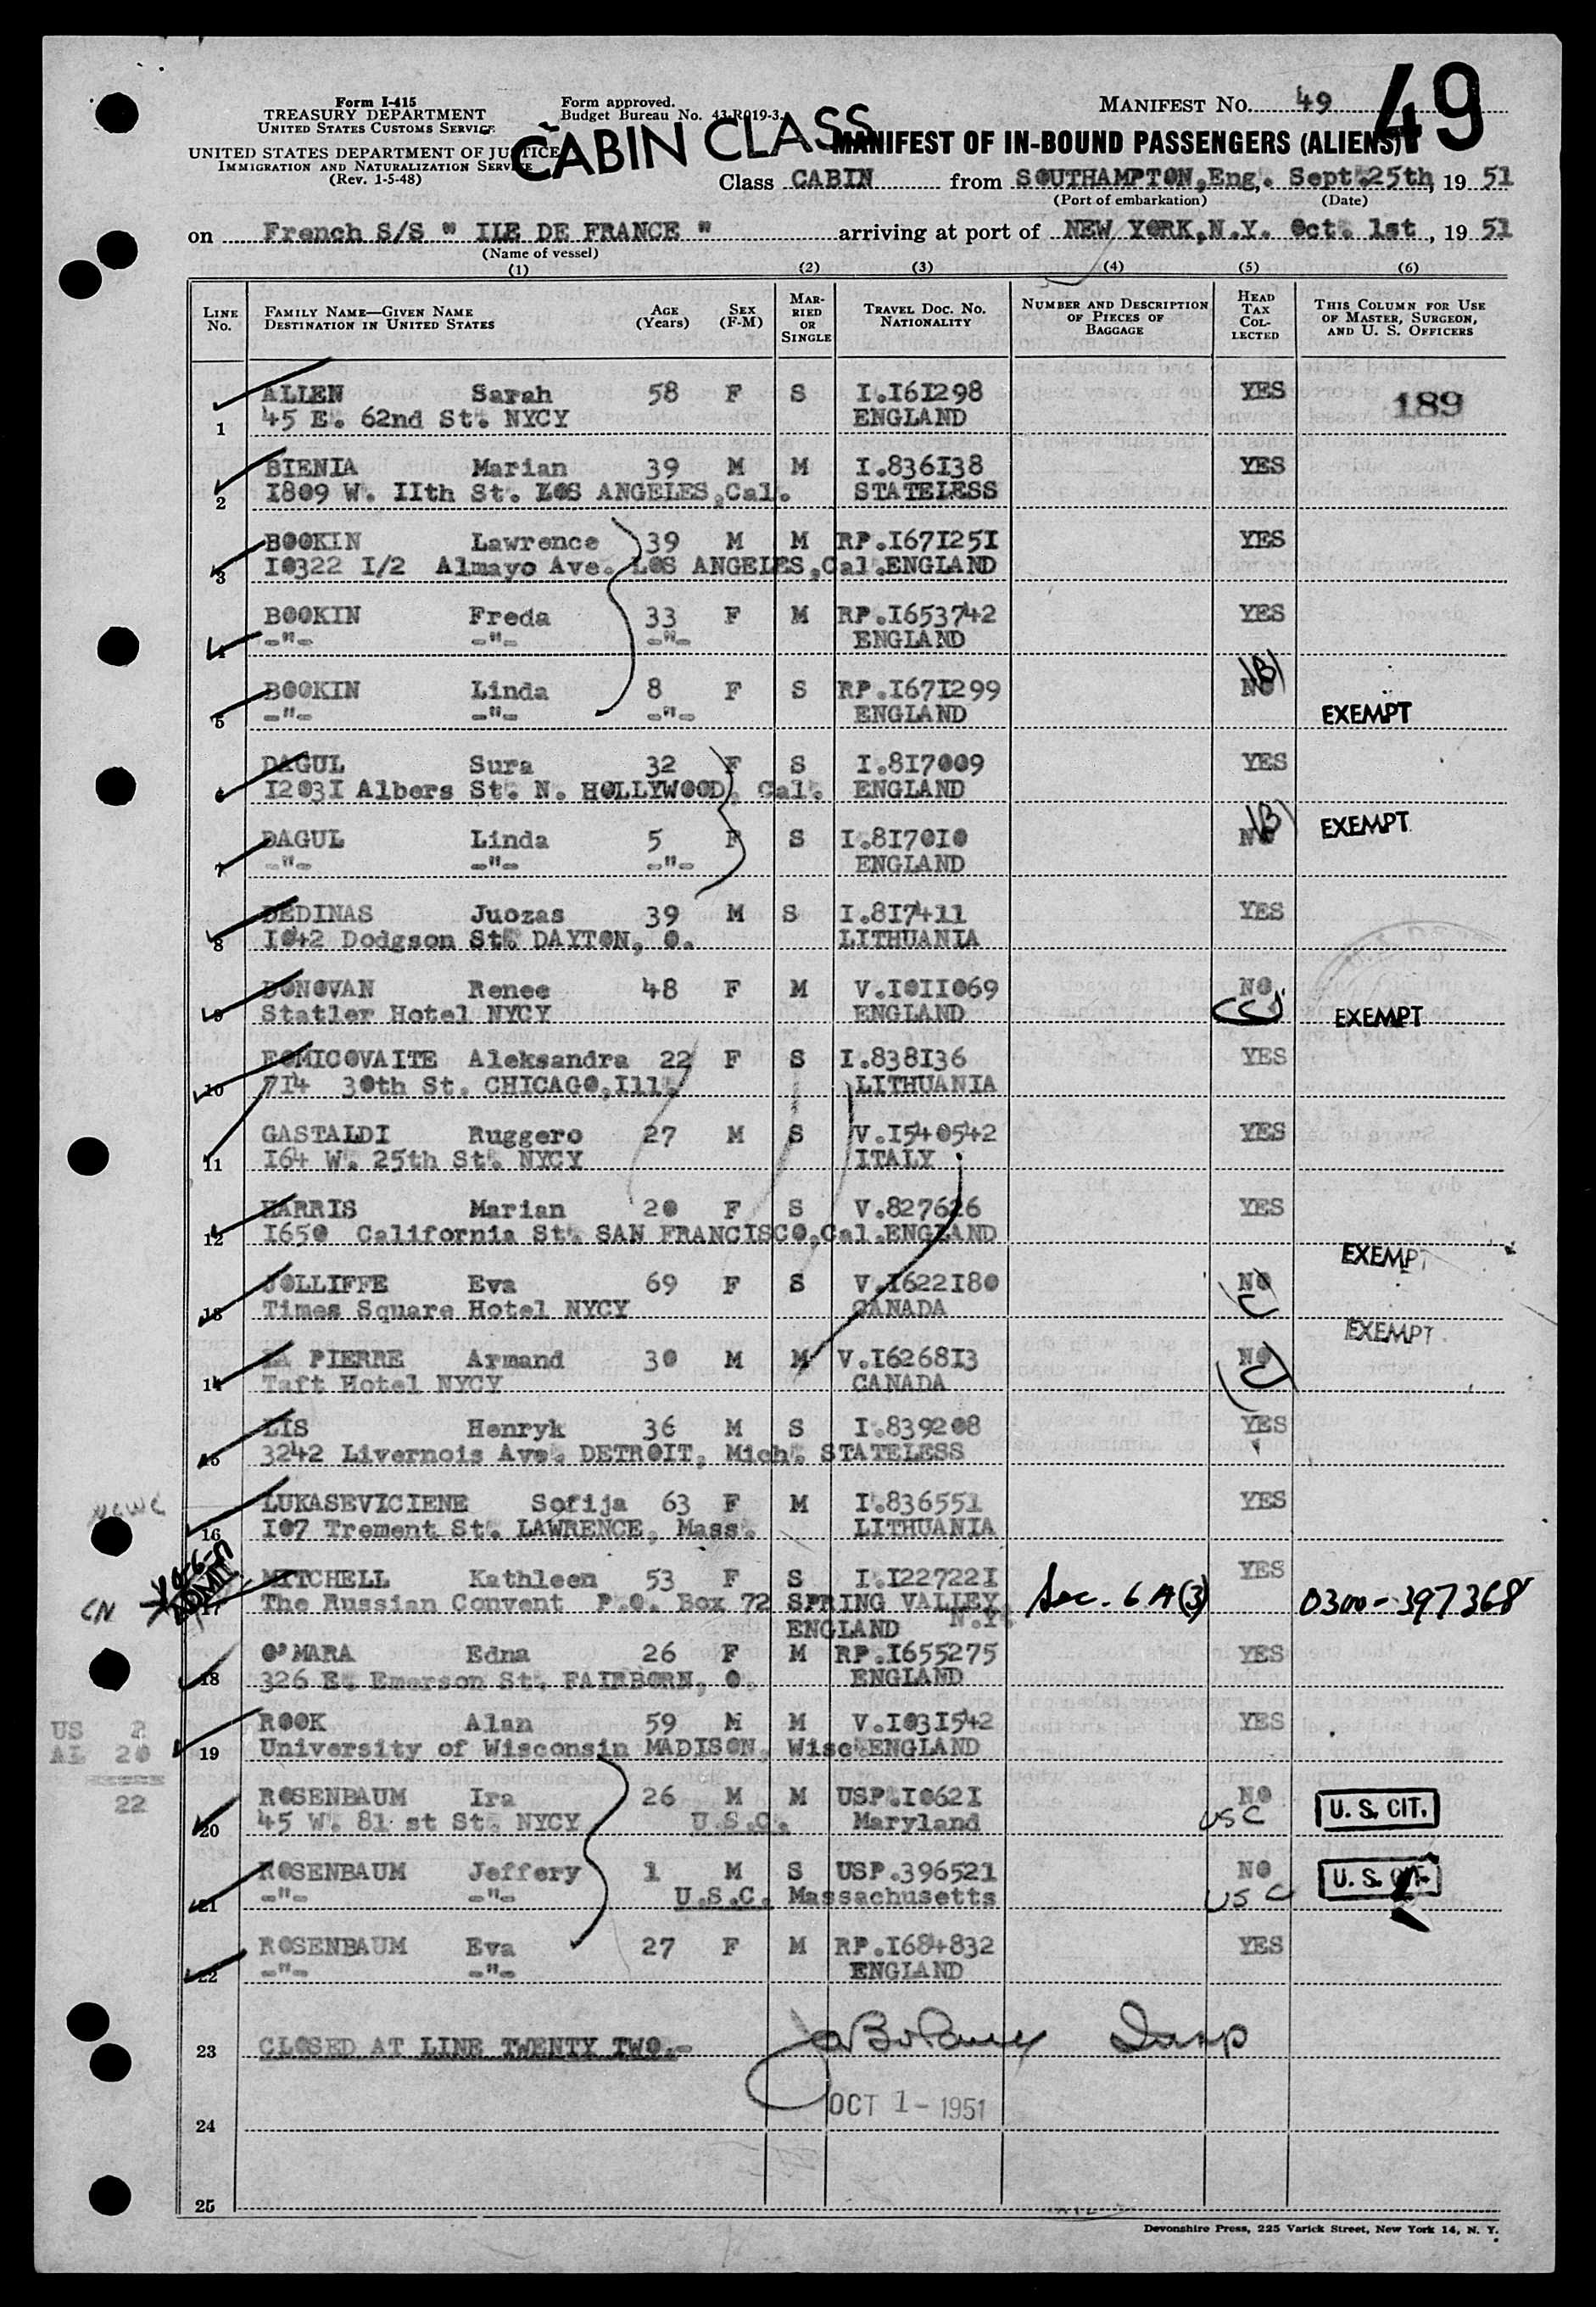 Form I-415
TREASURY DEPARTMENT
UNITED STATES CUSTOMS SERVICE
UNITED STATES DEPARTMENT OF JUSTICE
IMMIGRATION AND NATURALIZATION SERVICE
(Rev. 1-5-48)
Form approved.
Budget Bureau No. 43-R019-3.
CABIN CLASS
MANIFEST NO. 49
49
MANIFEST OF IN-BOUND PASSENGERS (ALIENS)
Class CABIN from SOUTHAMPTON,Eng. Sept.25th, 19 51
(Port of embarkation) (Date)
on French S/S " ILE DE FRANCE " arriving at port of NEW YORK,N.Y. Oct. 1st, 19 51
(Name of vessel)
(1) (2) (3) (4) (5) (6)
LINE No. FAMILY NAME—GIVEN NAME DESTINATION IN UNITED STATES AGE (Years) SEX (F-M) MARRIED OR SINGLE TRAVEL DOC. NO. NATIONALITY NUMBER AND DESCRIPTION OF PIECES OF BAGGAGE HEAD TAX COLLECTED THIS COLUMN FOR USE OF MASTER, SURGEON, AND U. S. OFFICERS
ALLEN Sarah 58 F S I.I6I298 YES 189
1 45 E. 62nd St. NYCY ENGLAND
BIENIA Marian 39 M M I.836I38 YES
2 I809 W. IIth St. LOS ANGELES,Cal. STATELESS
BOOKIN Lawrence 39 M M RP.I67I25I YES
3 I0322 I/2 Almayo Ave. LOS ANGELES,Cal.ENGLAND
BOOKIN Freda 33 F M RP.I653742 YES
4 -"- -"- -"- ENGLAND
BOOKIN Linda 8 F S RP.I67I299 NO (B)
5 -"- -"- -"- ENGLAND EXEMPT
DAGUL Sura 32 F S I.8I7009 YES
6 I203I Albers St. N. HOLLYWOOD, Cal. ENGLAND
DAGUL Linda 5 F S I.8I70I0 NO (B) EXEMPT
7 -"- -"- -"- ENGLAND
DEDINAS Juozas 39 M S I.8I7411 YES
8 I042 Dodgson St. DAYTON, O. LITHUANIA
DONOVAN Renee 48 F M V.I0II069 NO
9 Statler Hotel NYCY ENGLAND EXEMPT
ROMICOVAITE Aleksandra 22 F S I.838I36 YES
10 714 30th St. CHICAGO,Ill. LITHUANIA
GASTALDI Ruggero 27 M S V.I540542 YES
11 I64 W. 25th St. NYCY ITALY
HARRIS Marian 20 F S V.827626 YES
12 I650 California St. SAN FRANCISCO,Cal.ENGLAND
EXEMPT
JOLLIFFE Eva 69 F S V.I622I80 NO
13 Times Square Hotel NYCY CANADA C
EXEMPT
LA PIERRE Armand 30 M M V.I6268I3 NO
14 Taft Hotel NYCY CANADA
LIS Henryk 36 M S I.839208 YES
15 3242 Livernois Ave. DETROIT, Mich. STATELESS
NCWC
LUKASEVICIENE Sofija 63 F M I.836551 YES
16 I07 Trement St. LAWRENCE, Mass. LITHUANIA
ADMIT
MITCHELL Kathleen 53 F S I.I22722I YES
CN 17 The Russian Convent P.O. Box 72 SPRING VALLEY, N.Y. Sec. 6 A(3) 0300-397368
ENGLAND
O'MARA Edna 26 F M RP.I655275 YES
18 326 E. Emerson St. FAIRBORN, O. ENGLAND
ROOK Alan 59 M M V.I03I542 YES
19 University of Wisconsin MADISON, Wisc.ENGLAND
US 2
AL 20
22
ROSENBAUM Ira 26 M M USP.I062I NO U. S. CIT.
20 45 W. 81 st St. NYCY U.S.C. Maryland USC
ROSENBAUM Jeffery 1 M S USP.396521 NO U. S. CIT.
21 -"- -"- U.S.C. Massachusetts USC
ROSENBAUM Eva 27 F M RP.I684832 YES
22 -"- -"- ENGLAND
23 CLOSED AT LINE TWENTY TWO.- Insp
OCT 1 - 1951
24
25
Devonshire Press, 225 Varick Street, New York 14, N. Y.